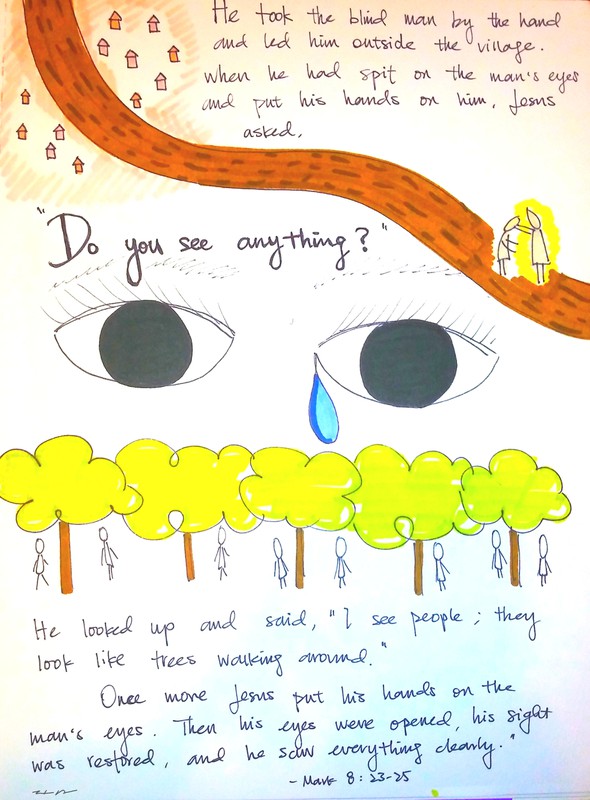 He took the blind man by the hand
and led him outside the village.
when he had spit on the man's eyes
and put his hands on him, Jesus
asked,
"Do you see anything?"
He looked up and said, "I see people; they
look like trees walking around."
Once more Jesus put his hands on the
man's eyes. Then his eyes were opened, his sight
was restored, and he saw everything clearly."
- Mark 8:23-25